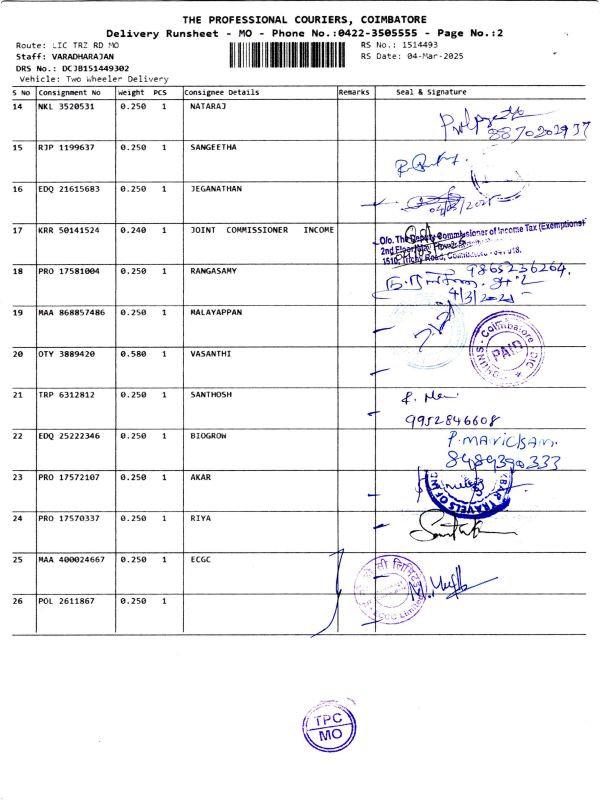 THE PROFESSIONAL COURIERS, COIMBATORE
Delivery Runsheet - MO - Phone No.:0422-3505555 - Page No.:2
Route: LIC TRZ RD MO
RS No.: 1514493
Staff: VARADHARAJAN
RS Date: 04-Mar-2025
DRS No.: DCJB151449302
Vehicle: Two Wheeler Delivery
S No Consignment No Weight PCS Consignee Details Remarks Seal & Signature
14 NKL 3520531 0.250 1 NATARAJ
8870202937
15 RJP 1199637 0.250 1 SANGEETHA
16 EDQ 21615683 0.250 1 JEGANATHAN
04/03/2025
17 KRR 50141524 0.240 1 JOINT COMMISSIONER INCOME
O/o. The Deputy Commissioner of Income Tax (Exemptions)
2nd Floor
1510, Trichy Road, Coimbatore - 641 018.
18 PRO 17581004 0.250 1 RANGASAMY
9865236264.
4/3/2025
19 MAA 868857486 0.250 1 MALAYAPPAN
Coimbatore
PAID
20 OTY 3889420 0.580 1 VASANTHI
21 TRP 6312812 0.250 1 SANTHOSH
9952846608
22 EDQ 25222346 0.250 1 BIOGROW
8489390333
23 PRO 17572107 0.250 1 AKAR
TRAVELS OF
24 PRO 17570337 0.250 1 RIYA
25 MAA 400024667 0.250 1 ECGC
लिमिटेड
ECGC Limited
26 POL 2611867 0.250 1
TPC
MO